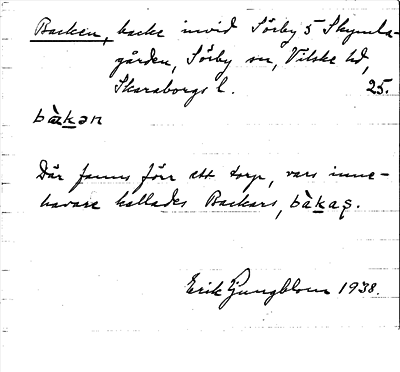 Backen, backe invid Sörby 5 Skymla-
gården, Sörby sn, Vilske hd,
Skaraborgs l. 25.
bàkən
Där fanns förr ett torp, vars inne-
havare kallades Backars, bàkaş.
Erik Ljungblom 1938.